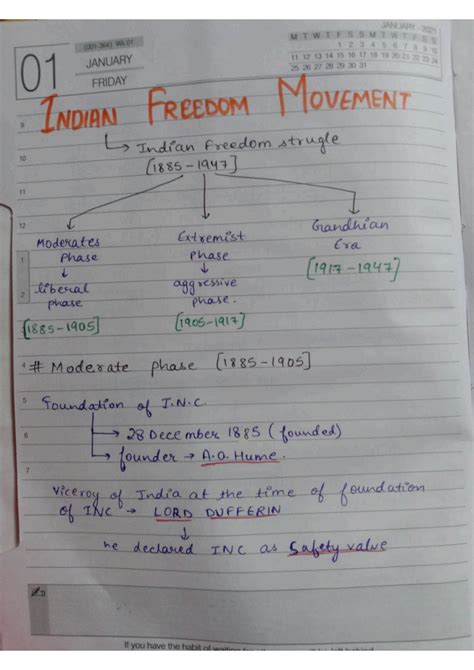 JANUARY - 2021
(001-364) Wk 01
M T W T F S S M T W T F S S
01
JANUARY
1 2 3 4 5 6 7 8 9 10
11 12 13 14 15 16 17 18 19 20 21 22 23 24
FRIDAY
25 26 27 28 29 30 31
INDIAN FREEDOM MOVEMENT
9
Indian freedom strugle
10
[1885-1947]
11
12
Moderates Extremist Gandhian
Phase Phase Era
1
liberal aggressive [1917-1947]
phase phase.
2
[1885-1905] [1905-1917]
4 # Moderate phase [1885-1905]
5
Foundation of I.N.C.
6 → 28 December 1885 (founded)
→ founder → A.O. Hume.
7
Viceroy of India at the time of foundation
of INC → LORD DUFFERIN
he declared INC as Safety valve
If you have the habit of